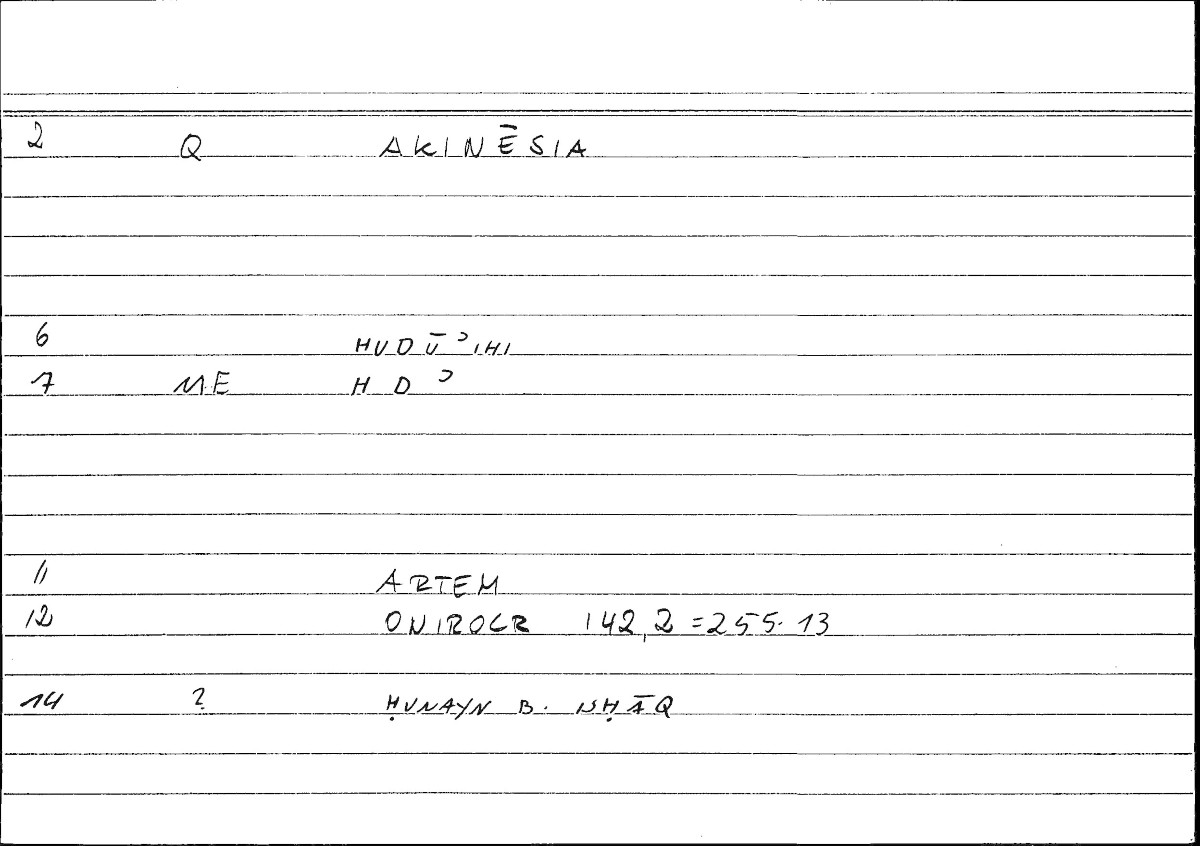 2 Q AKINĒSIA
6 HUDŪʾIHI
7 ME H D ʾ
11 ARTEM
12 ONIROCR 142,2 = 255.13
14 ? ḤUNAYN B. ISḤĀQ